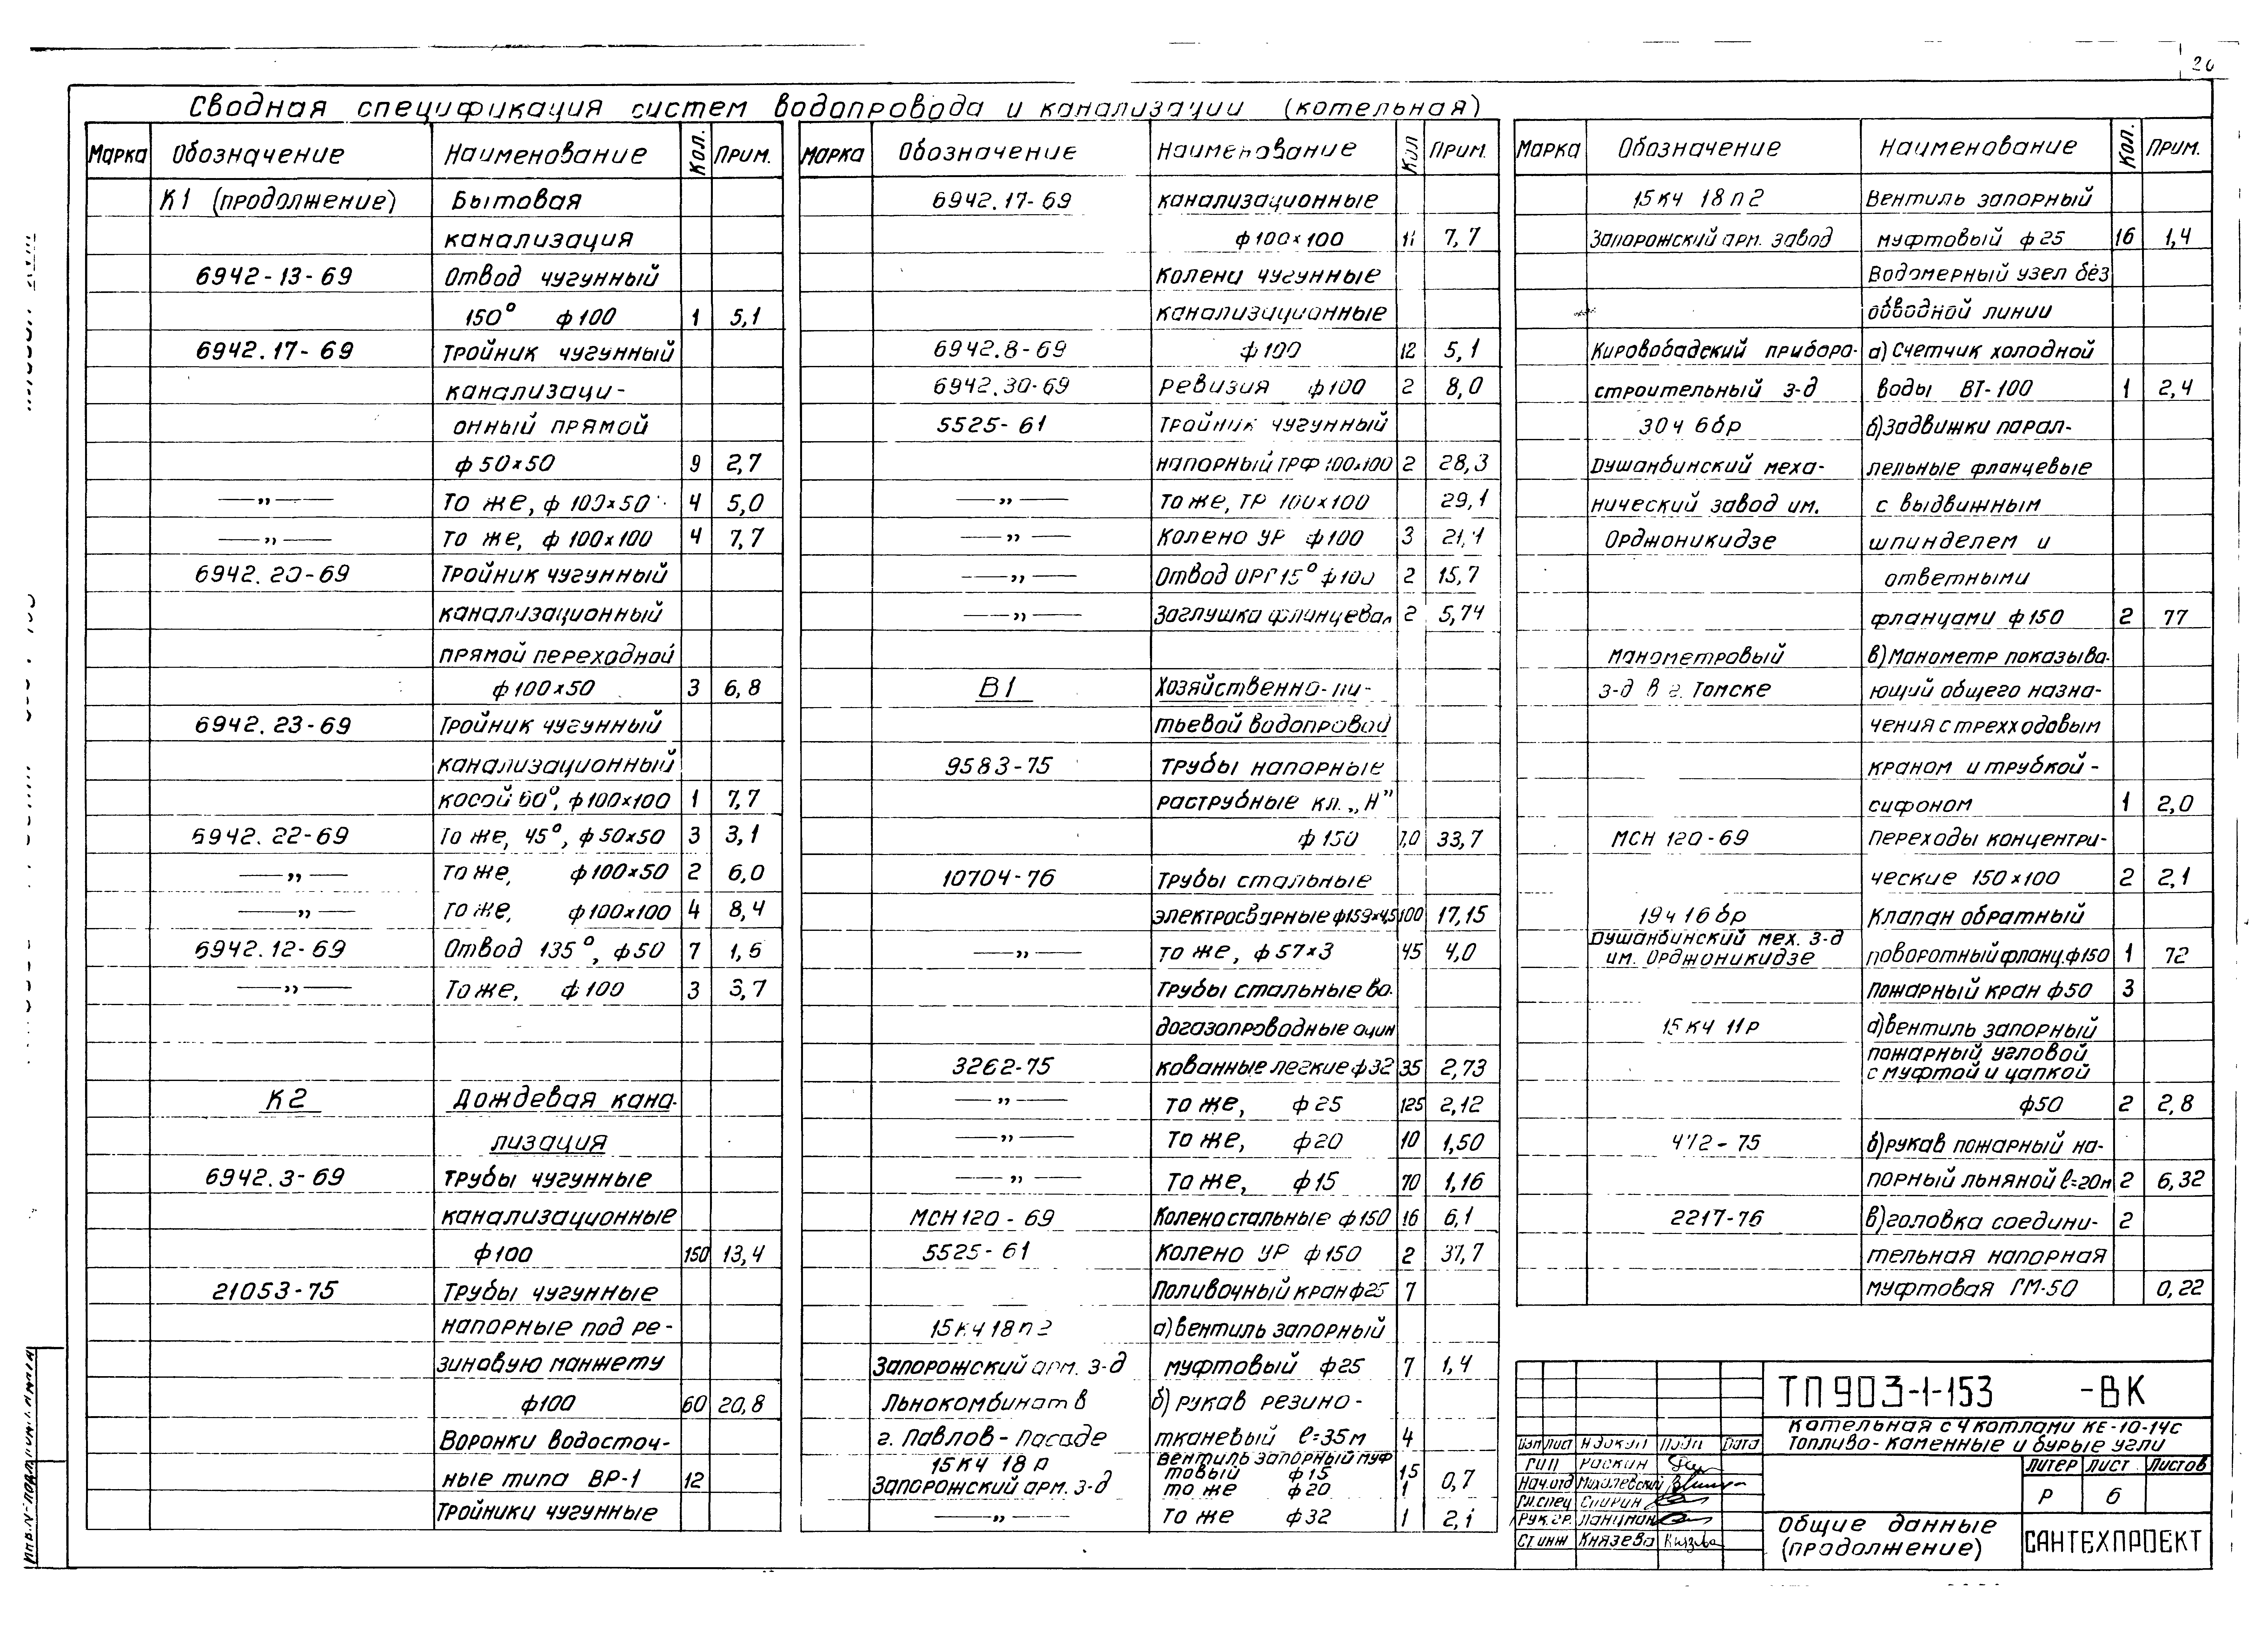 26
Сводная спецификация систем водопровода и канализации (котельная)
Марка Обозначение Наименование Кол. Прим.
К1 (продолжение) Бытовая
канализация
6942-13-69 Отвод чугунный
150° ф100 1 5,1
6942.17-69 Тройник чугунный
канализаци-
онный прямой
ф50х50 9 2,7
—„— То же, ф 100х50 4 5,0
—„— То же, ф 100х100 4 7,7
6942.20-69 Тройник чугунный
канализационный
прямой переходной
ф100х50 3 6,8
6942.23-69 Тройник чугунный
канализационный
косой 60°, ф100х100 1 7,7
6942.22-69 То же, 45°, ф50х50 3 3,1
—„— То же, ф100х50 2 6,0
—„— То же, ф100х100 4 8,4
6942.12-69 Отвод 135°, ф50 7 1,6
—„— То же, ф100 3 3,7
К2 Дождевая кана-
лизация
6942.3-69 Трубы чугунные
канализационные
ф100 150 13,4
21053-75 Трубы чугунные
напорные под ре-
зиновую манжету
ф100 60 20,8
Воронки водосточ-
ные типа ВР-1 12
Тройники чугунные
Марка Обозначение Наименование Кол Прим.
6942.17-69 канализационные
ф100х100 11 7,7
Колена чугунные
канализационные
6942.8-69 ф100 12 5,1
6942.30-69 Ревизия ф100 2 8,0
5525-61 Тройник чугунный
напорный ТРФ 100х100 2 28,3
—„— То же, ТР 100х100 29,1
—„— Колено УР ф100 3 21,1
—„— Отвод ОРГ 15° ф100 2 15,7
—„— Заглушка фланцевая 2 5,74
В1 Хозяйственно-пи-
тьевой водопровод
9583-75 Трубы напорные
раструбные кл. „Н”
ф150 7,0 33,7
10704-76 Трубы стальные
электросварные ф159х4,5 100 17,15
—„— то же, ф57х3 45 4,0
Трубы стальные во-
догазопроводные оцин
3262-75 кованные легкие ф32 35 2,73
—„— то же, ф25 125 2,12
—„— то же, ф20 10 1,50
—„— то же, ф15 70 1,16
МСН 120-69 Колено стальные ф150 16 6,1
5525-61 Колено УР ф150 2 37,7
Поливочный кран ф25 7
15кч18п2 а) вентиль запорный
Запорожский арм. з-д муфтовый ф25 7 1,4
Льнокомбинат в б) рукав резино-
г. Павлов-Посаде тканевый ℓ=35м 4
15кч 18п вентиль запорный муф
товый ф15 15 0,7
Запорожский арм. з-д то же ф20 1
—„— то же ф32 1 2,1
Марка Обозначение Наименование Кол. Прим.
15кч 18п2 Вентиль запорный
Запорожский арм. завод муфтовый ф25 16 1,4
Водомерный узел без
обводной линии
Кировобадский приборо- а) Счетчик холодной
строительный з-д воды ВТ-100 1 2,4
30ч 6бр б) Задвижки парал-
Душанбинский меха- лельные фланцевые
нический завод им. с выдвижным
Орджоникидзе шпинделем и
ответными
фланцами ф150 2 77
Манометровый в) Манометр показыва-
з-д в г. Томске ющий общего назна-
чения с трехходовым
краном и трубкой-
сифоном 1 2,0
МСН 120-69 Переходы концентри-
ческие 150х100 2 2,1
19ч16бр Клапан обратный
Душанбинский мех. з-д
им. Орджоникидзе поворотный фланц. ф150 1 72
Пожарный кран ф50 3
15кч 11р а) вентиль запорный
пожарный угловой
с муфтой и цапкой
ф50 2 2,8
472-75 б) рукав пожарный на-
порный льняной ℓ=20м 2 6,32
2217-76 в) головка соедини- 2
тельная напорная
муфтовая ГМ-50 0,22
ТП 903-1-153 -ВК
Котельная с 4 котлами КЕ-10-14с
Топливо-каменные и бурые угли
Изм Лист N докум Подп Дата
ГИП Раскин
Нач.отд Михалевский
Гл.спец Спирин
Рук.гр.
Ст инж Князева
Литер Лист Листов
Р 6
Общие данные
(продолжение)
САНТЕХПРОЕКТ